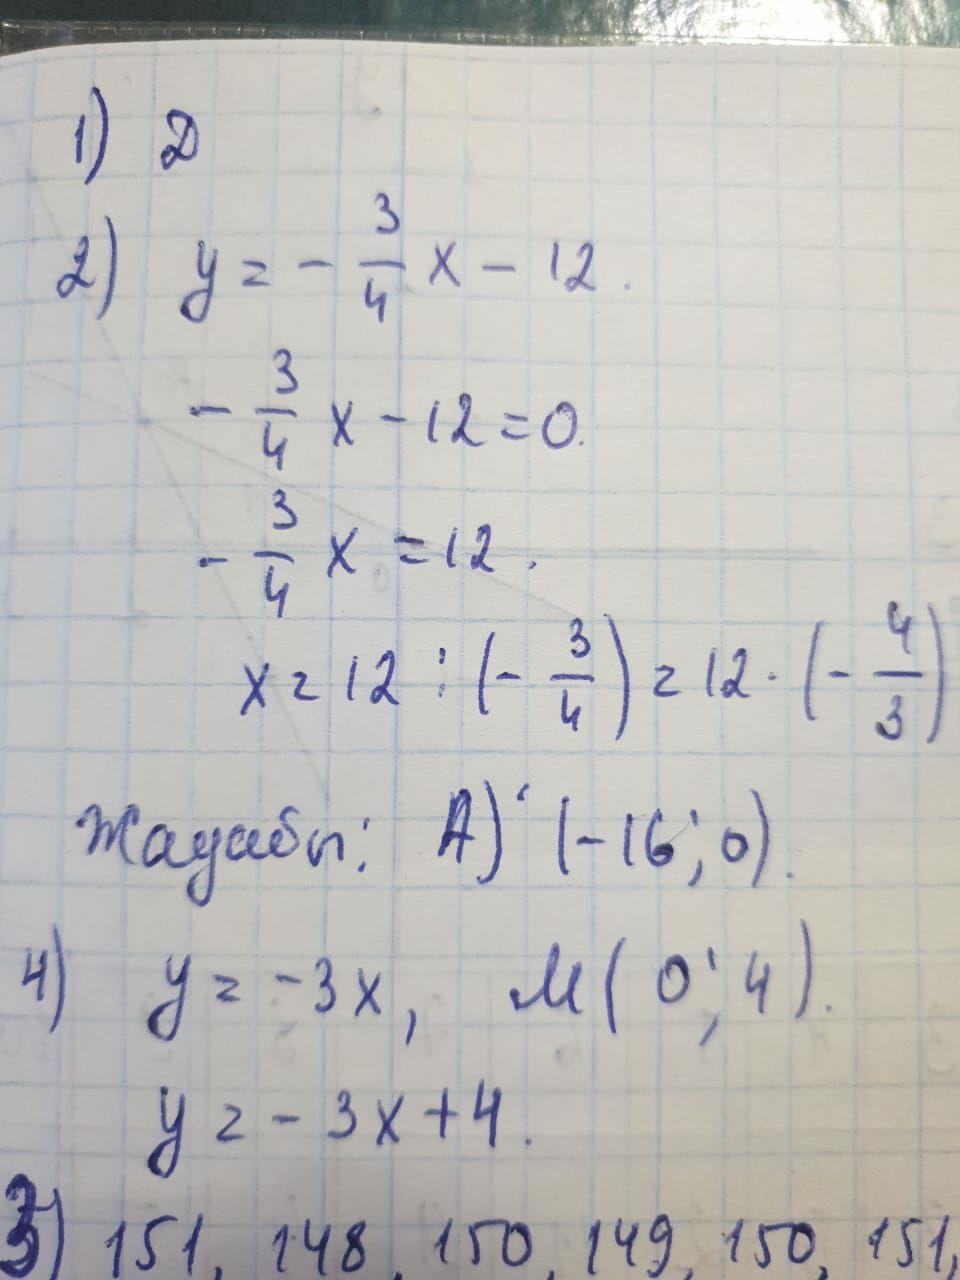 1) D
2) y = - 3/4 x - 12.
- 3/4 x - 12 = 0.
- 3/4 x = 12.
x = 12 : (- 3/4) = 12 · (- 4/3)
Жауабы: A) (-16; 0).
4) y = -3x, M(0; 4).
y = -3x + 4.
3) 151, 148, 150, 149, 150, 151,